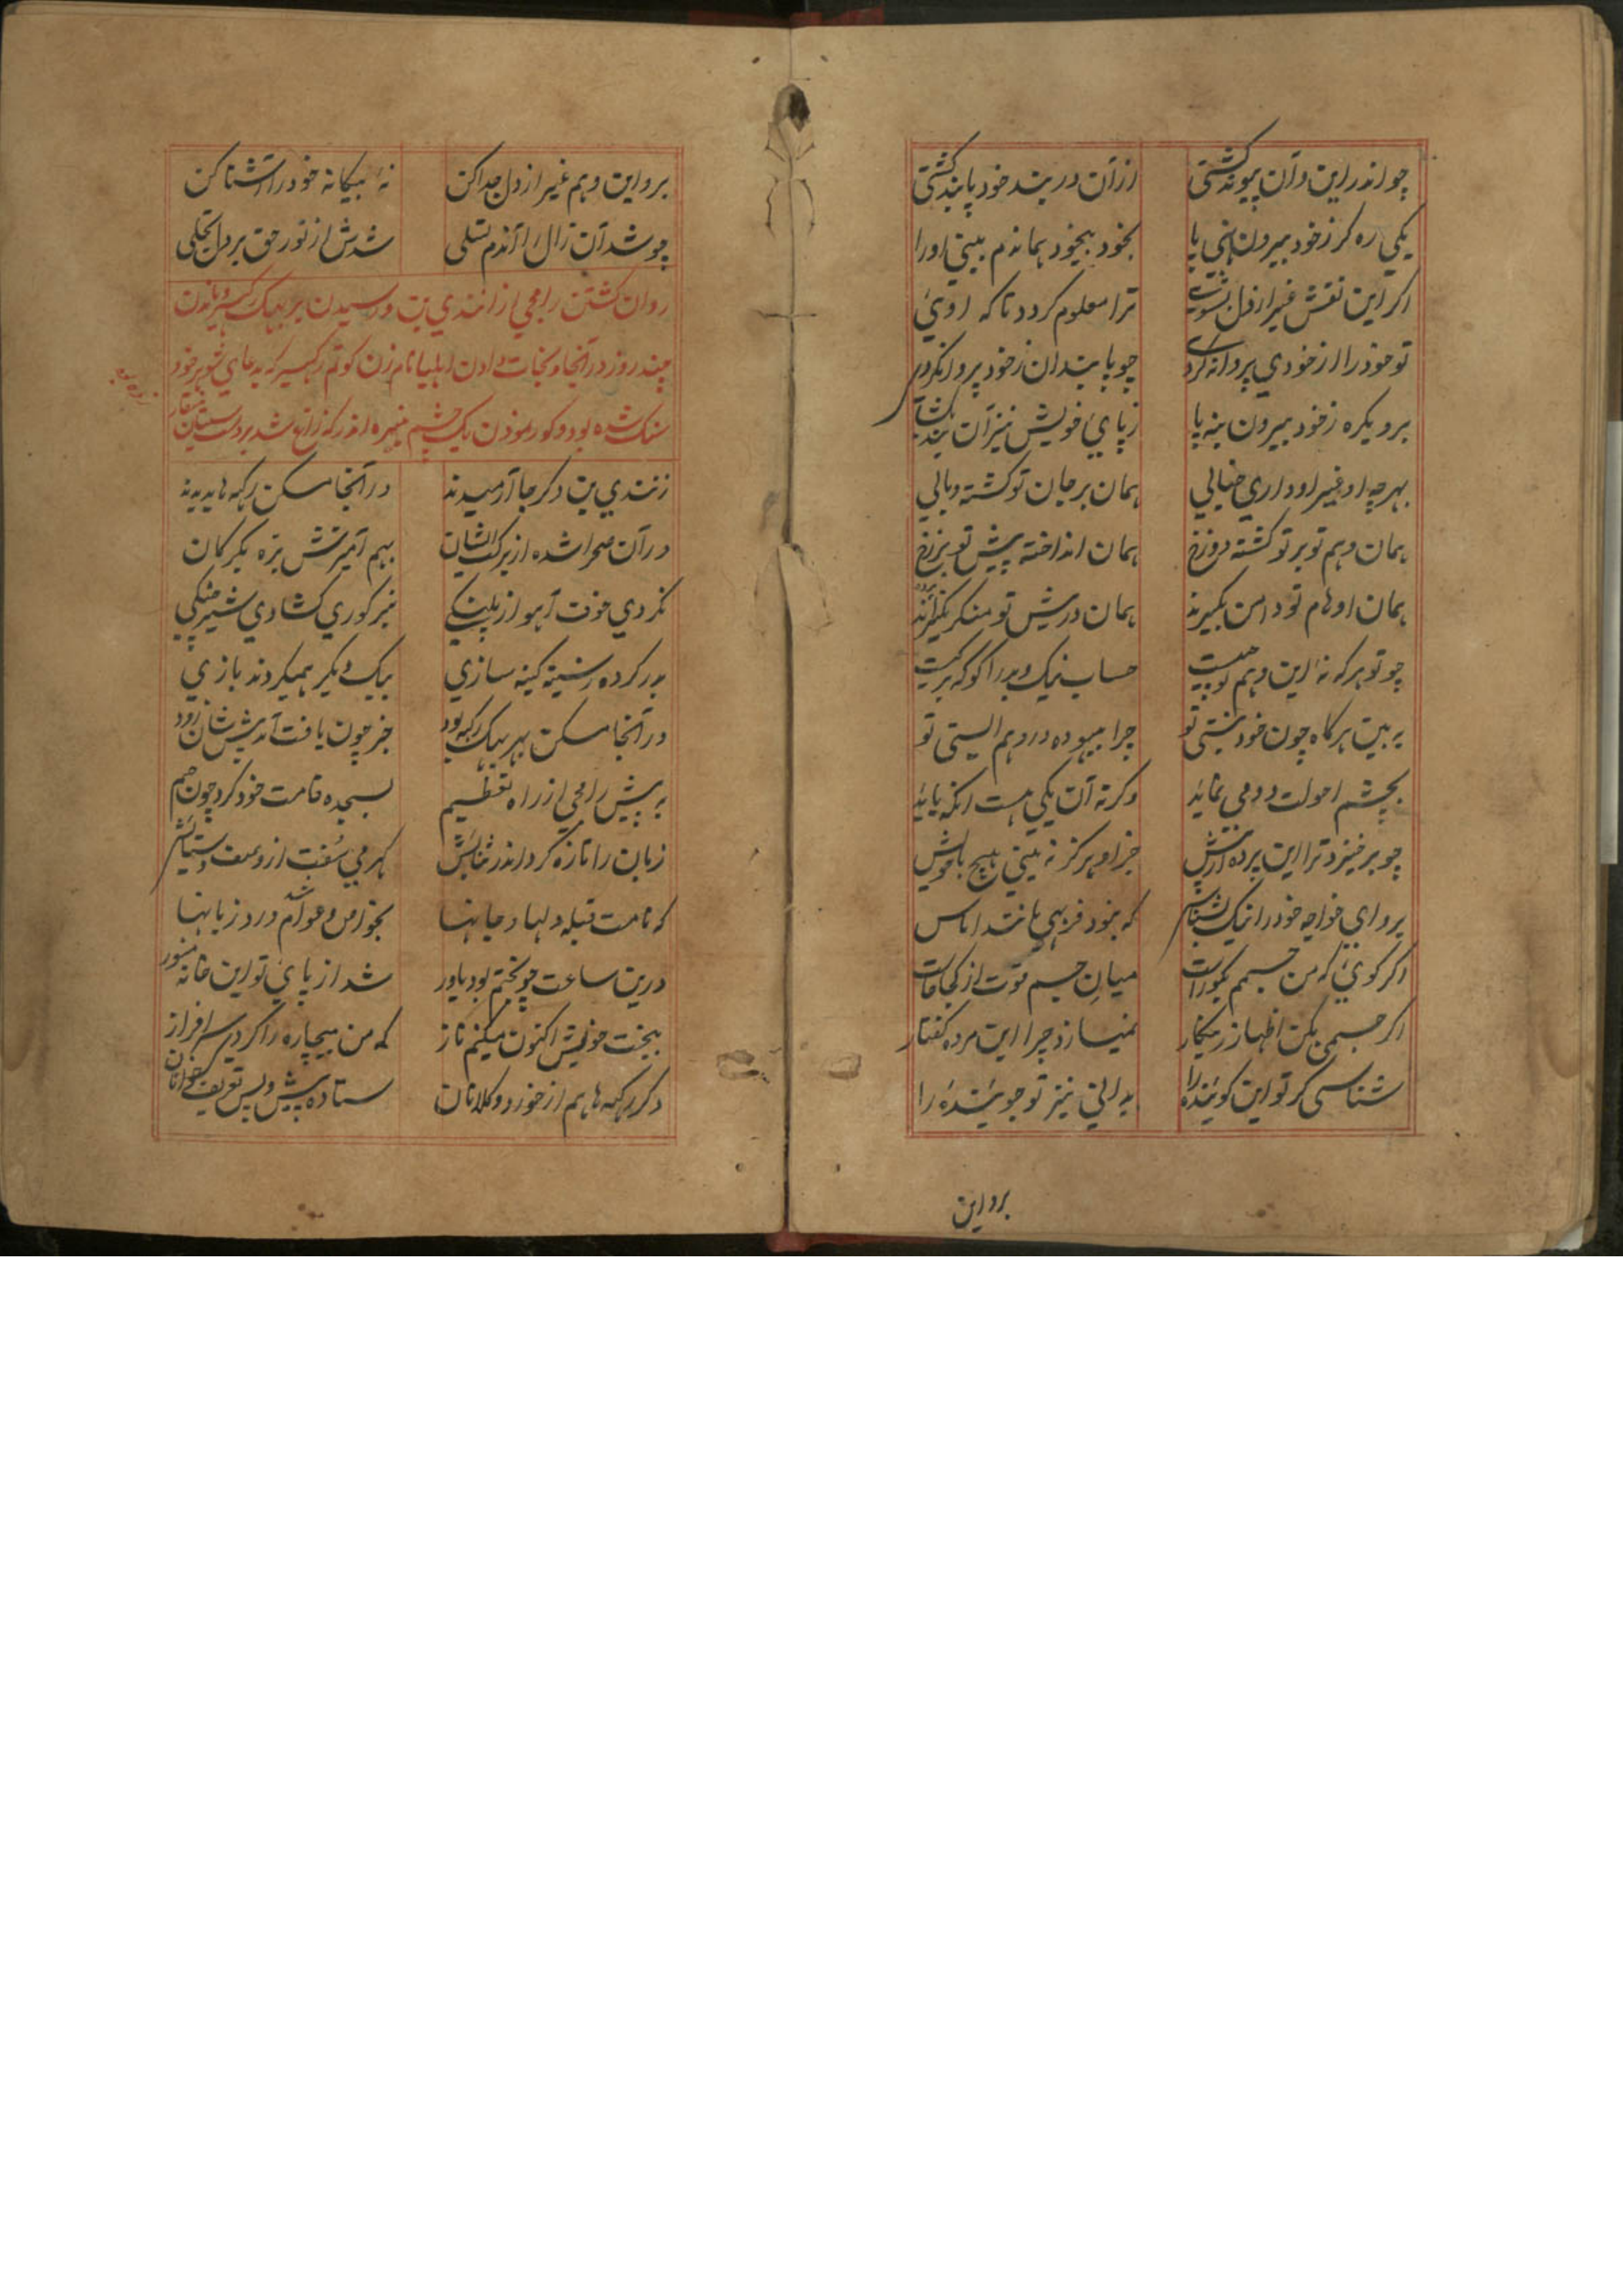 چو اندر این و آن پیوند کشتی از آن در بند خود پابند کشتی
یکی ره کر ز خود بیرون نهی پا بخود بیخود هماندم ببینی او را
اکر این نقش غیر از دل بشویی ترا معلوم کردد تا که اویی
تو خود را از خودی پروا نکردی چو پابندان ز خود پروا نکردی
برو یکره ز خود بیرون بنه پا ز پای خویش نیز آن بند بکشا
بهر چه از غیر او داری خیالی همان بر جان تو کشته وبالی
همان وهم تو بر تو کشته دوزخ همان انداخته پیش تو برزخ
همان اوهام تو دامن بکیرند همان درپیش تو منکر نکیرند
چو تو هر که نه این وهم تو چیست حساب نیک و بد را کو که بر کیست
به بین هر کاه چون خود نیستی تو چرا بیهوده در وهم ایستی تو
بچشم احولت دو می نماید وکرنه آن یکی هست انکه باید
چو برخیزد ترا این پرده از پیش جز او هرکز نه بینی هیچ با خویش
برو ای خواجه خود را نیک بشناس که نبود فربهی مانند اماس
اکر کویی که من جسمم بکو راست میان جسم قوت از کجا خاست
اکر جسمی بکن اظهار زین کار نمیسازد چرا این مرده کفتار
شناسی کر تو این کوینده را بدانی نیز تو جوینده را
برو این
برو این وهم غیر از دل جدا کن نه بیکانه خود را آشنا کن
چو شد آن زال را آندم تسلی شدش از نور حق بر دل تجلی
روان کشتن رامجی از انندی بن و رسیدن بر
چند روز در آنجا و نجات دادن اهلیا نام زن کوتم رکهیسر که بدعای شوهر خود
سنک شده بود و کور نمودن یک چشم
ز نندی بن دکر جا آرمیدند در آنجا مسکن رکهه ها بدیدند
در آن صحرا شده از برکت ایشان بهم آمیزش بره بکرکان
نکردی خوف آهو از پلنکی
بدر کرده ز سینه کینه سازی بیک دیکر همیکردند بازی
در آنجا مسکن رکهه بود خبر چون یافت آمد پیش شان زود
به پیش رامجی از راه تعظیم بسجده قامت خود کرد چون جیم
زبان را تازه کرد اندر ثنایش کهر می سفت از وصف و ستایش
که نامت قبله دلها و جانها بخواص و عوام شد ورد زبانها
درین ساعت چو بختم بود یاور شد از پای تو این خانه منور
ببخت خویش اکنون میکنم ناز که من بیچاره را کردی سرافراز
دکر رکهه ها هم از خورد و کلانان ستاده پیش و پس تعریف خوانان